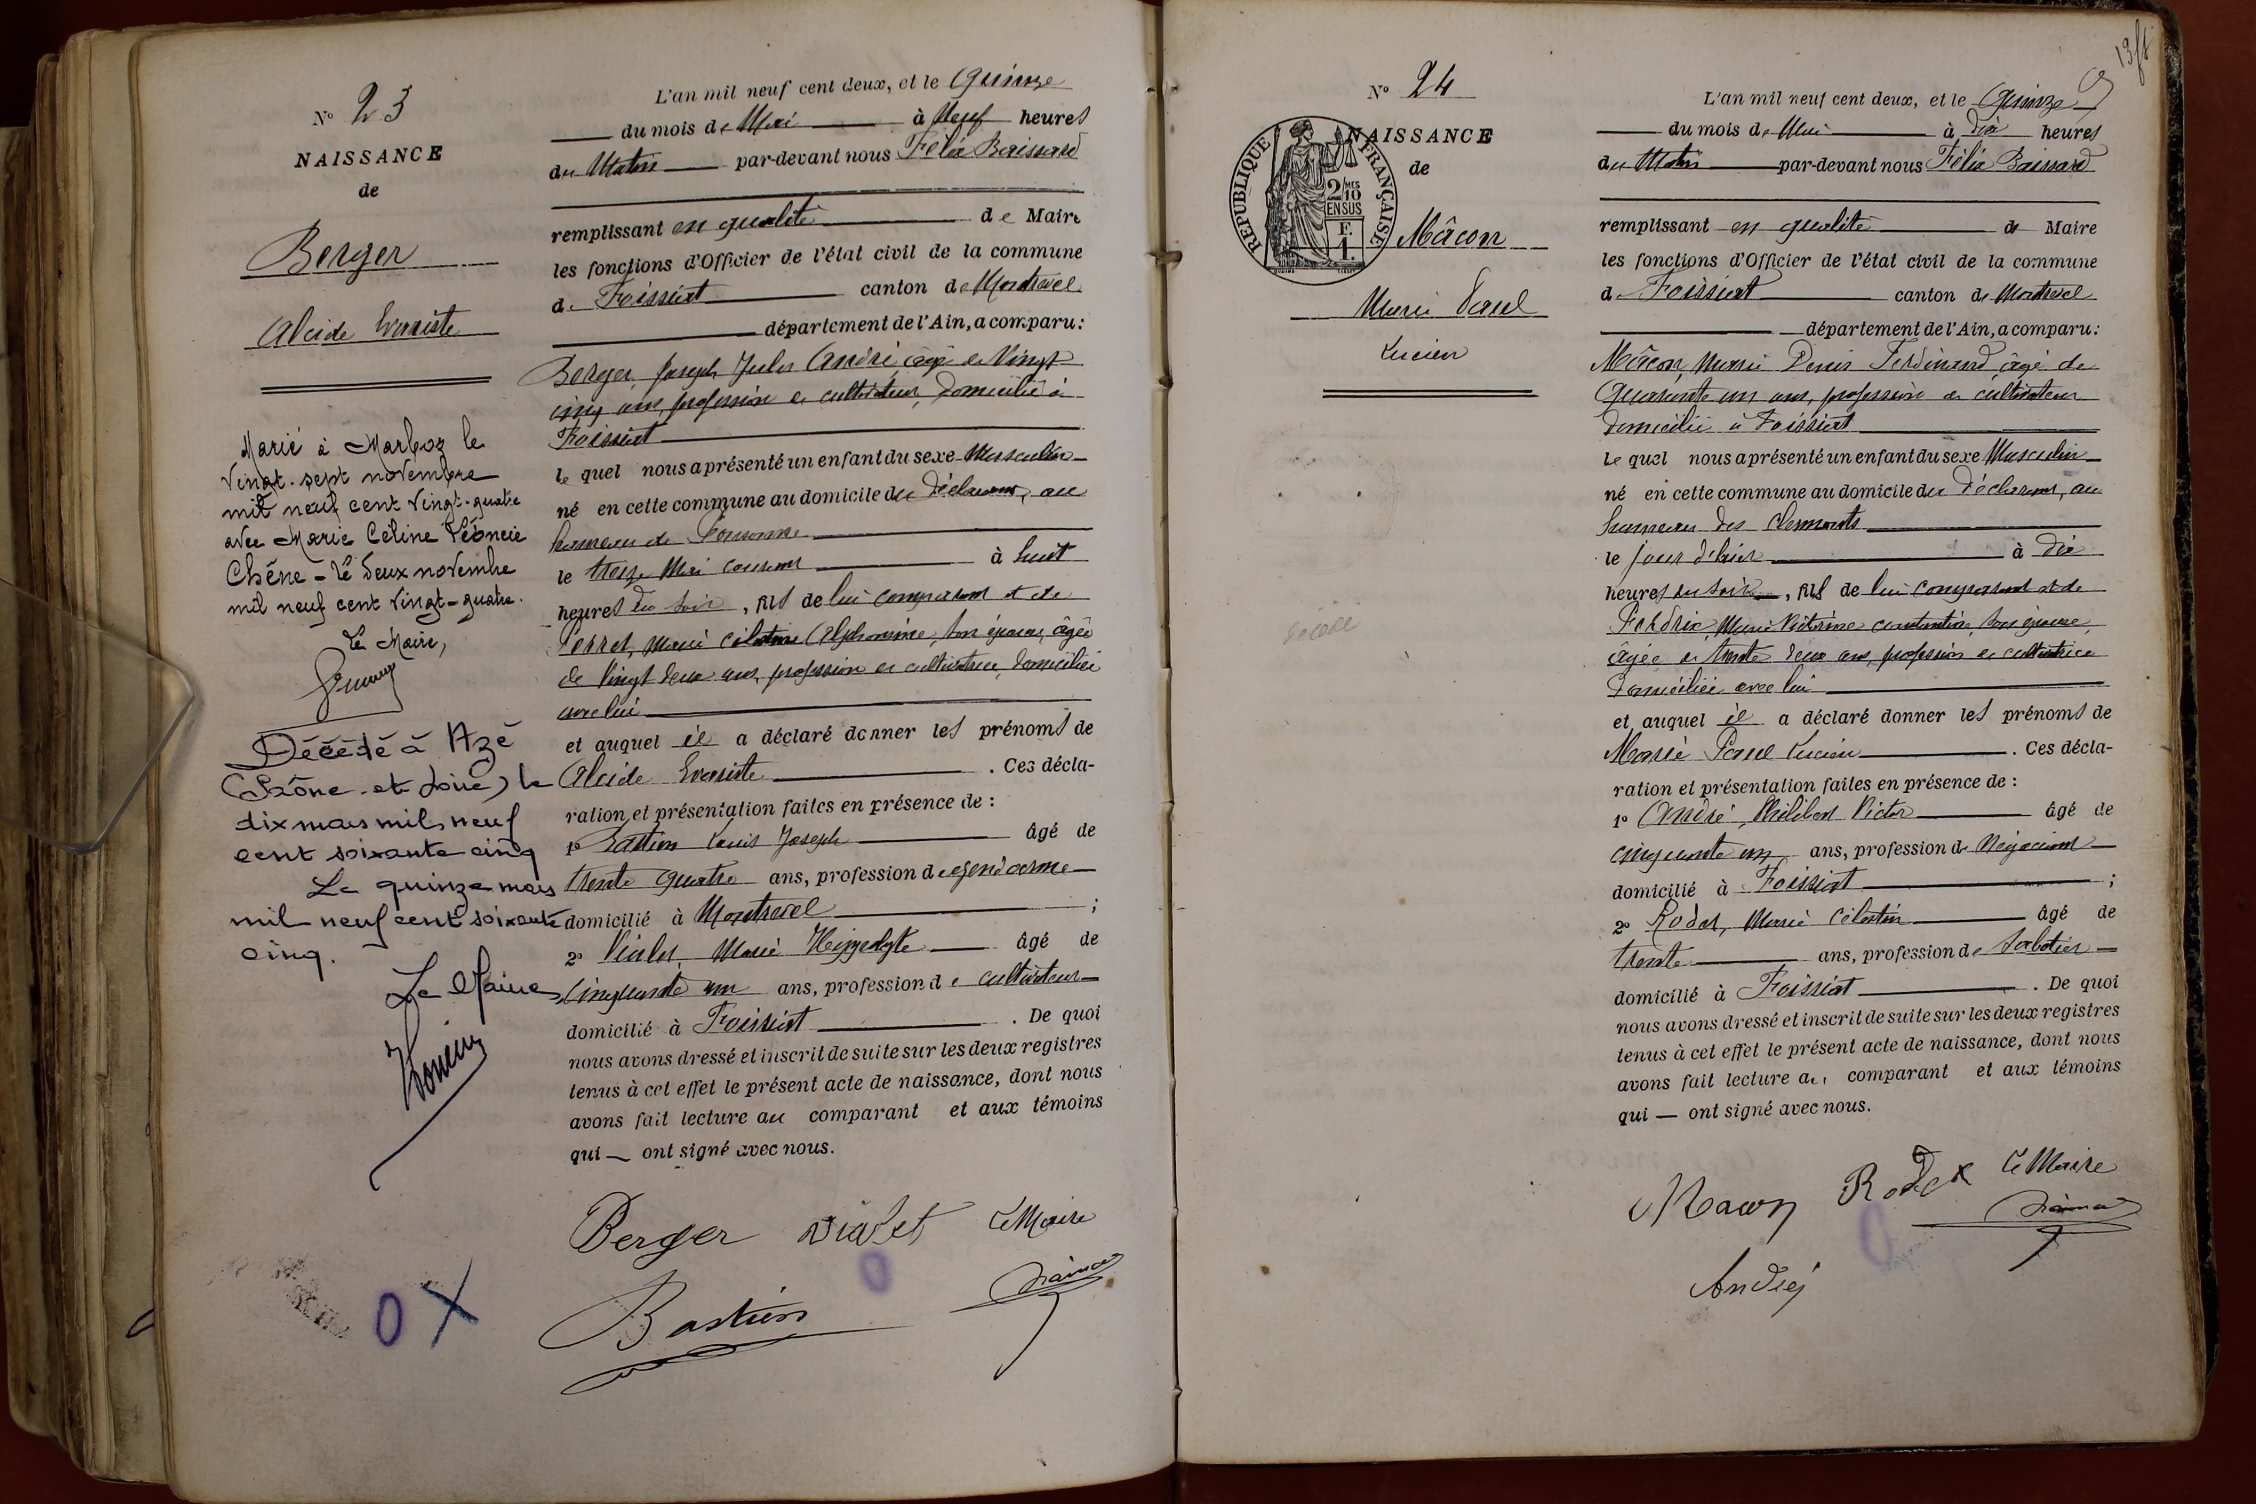 N° 23
NAISSANCE
de
Berger
Alcide Evariste
Marié à Marboz le
vingt-sept novembre
mil neuf cent vingt-quatre
avec Marie Céline Léoncie
Chêne - le deux novembre
mil neuf cent vingt-quatre.
Le Maire,
Décédé à Azé
(Saône-et-Loire) le
dix mars mil neuf
cent soixante cinq
Le quinze mars
mil neuf cent soixante
cinq.
Le Maire,
L'an mil neuf cent deux, et le Quinze
du mois de Mai à Neuf heures
du Matin par-devant nous Félix Boissard
remplissant en qualité de Maire
les fonctions d'Officier de l'état civil de la commune
de Foissiat canton de Montrevel
département de l'Ain, a comparu:
Berger, Joseph Jules André âgé de Vingt
cinq ans, profession de cultivateur, domicilié à
Foissiat
le quel nous a présenté un enfant du sexe Masculin
né en cette commune au domicile du déclarant, au
hameau de
le treize Mai courant à huit
heures du soir, fils de lui comparant et de
Perret, Marie Célestine Alphonsine, son épouse, âgée
de vingt deux ans, profession de cultivatrice, domiciliée
avec lui
et auquel il a déclaré donner les prénoms de
Alcide Evariste. Ces décla-
ration et présentation faites en présence de :
1° Bastien Louis Joseph âgé de
trente quatre ans, profession de gendarme
domicilié à Montrevel ;
2° Vialet, Marie Hippolyte âgé de
Cinquante un ans, profession de cultivateur
domicilié à Foissiat. De quoi
nous avons dressé et inscrit de suite sur les deux registres
tenus à cet effet le présent acte de naissance, dont nous
avons fait lecture au comparant et aux témoins
qui — ont signé avec nous.
Berger Vialet Le Maire
Bastien
0 X
0
13
N° 24
NAISSANCE
de
RÉPUBLIQUE FRANÇAISE
2/10 MES
EN SUS
F.
1.
Mâcon
Marie Paul
Lucien
L'an mil neuf cent deux, et le Quinze
du mois de Mai à Dix heures
du Matin par-devant nous Félix Boissard
remplissant en qualité de Maire
les fonctions d'Officier de l'état civil de la commune
de Foissiat canton de Montrevel
département de l'Ain, a comparu:
Mâcon, Marie Denis Ferdinand, âgé de
Quarante un ans, profession de cultivateur
domicilié à Foissiat
le quel nous a présenté un enfant du sexe Masculin
né en cette commune au domicile du déclarant, au
hameau des Clermonts
le jour d'hier à Dix
heures du soir, fils de lui comparant et de
Perdrix, Marie Victorine Constantine, son épouse,
âgée de trente deux ans, profession de cultivatrice
domiciliée avec lui
et auquel il a déclaré donner les prénoms de
Marie Paul Lucien. Ces décla-
ration et présentation faites en présence de :
1° André, Philibert Victor âgé de
cinquante un ans, profession de Négociant
domicilié à Foissiat ;
2° Rodet, Marie Célestin âgé de
trente ans, profession de Sabotier
domicilié à Foissiat. De quoi
nous avons dressé et inscrit de suite sur les deux registres
tenus à cet effet le présent acte de naissance, dont nous
avons fait lecture au comparant et aux témoins
qui — ont signé avec nous.
Macon Rodet Le Maire
André
0